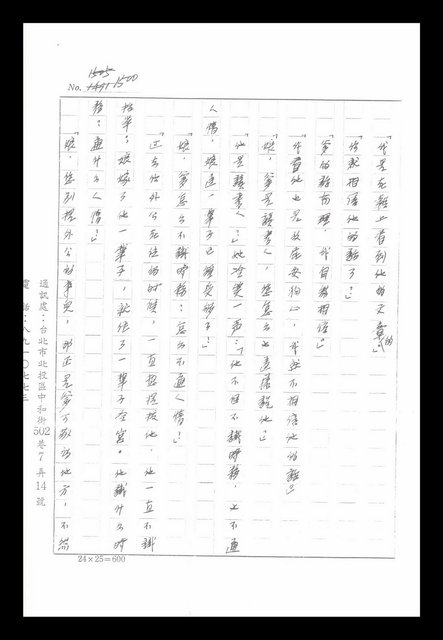 No. 1500
「我是在報上看到他的文章的。」
「你就相信他的話了？」
「爹的話有理，我自然相信。」
「你看他也是故意安狗心，我就不相信他的話。」
「娘，爹是讀書人，您怎麼也這樣說他？」
「他是讀書人？」她冷笑一聲：「他不但不識時務，也不通
人情，娘這一輩子已經受夠了！」
「娘，爹怎麼不識時務？怎麼不通人情？」
「過去你外公在位的時候，一直想提拔他，他一直不識
抬舉；娘嫁了他一輩子，就怨了一輩子。他識什麼時
務？通什麼人情？」
「娘，您別提外公的事兒，那正是爹可敬的地方，不然
通訊處：台北市北投區中和街502巷7弄14號
電話：八九一〇七七三
24×25=600